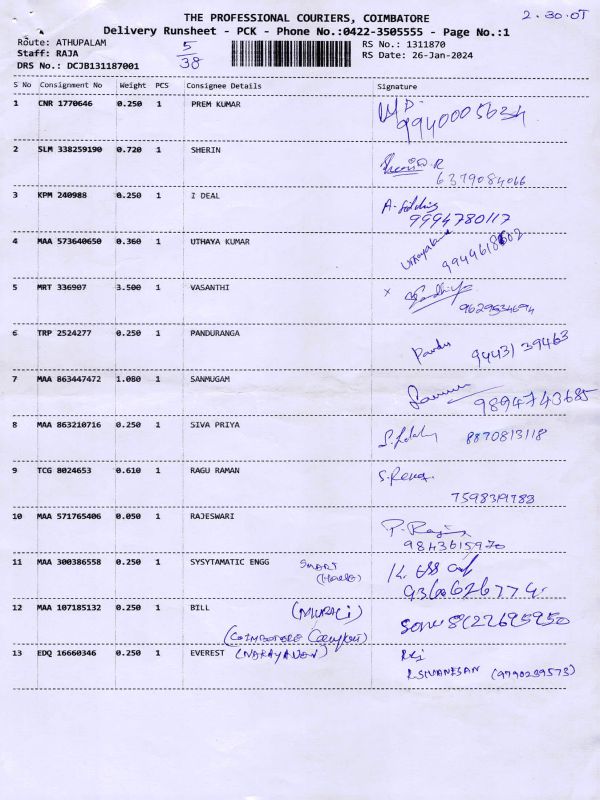 THE PROFESSIONAL COURIERS, COIMBATORE
2.30.
Delivery Runsheet - PCK - Phone No.:0422-3505555 - Page No.:1
Route: ATHUPALAM 5/38 RS No.: 1311870
Staff: RAJA RS Date: 26-Jan-2024
DRS No.: DCJB131187001
S No Consignment No Weight PCS Consignee Details Signature
1 CNR 1770646 0.250 1 PREM KUMAR
9940005634
2 SLM 338259190 0.720 1 SHERIN
6379084066
3 KPM 240988 0.250 1 I DEAL
9994780117
4 MAA 573640650 0.360 1 UTHAYA KUMAR
5 MRT 336907 3.500 1 VASANTHI x
9629534694
6 TRP 2524277 0.250 1 PANDURANGA
Pandu 9443139463
7 MAA 863447472 1.080 1 SANMUGAM
9894743685
8 MAA 863210716 0.250 1 SIVA PRIYA
8870813118
9 TCG 8024653 0.610 1 RAGU RAMAN
7598319783
10 MAA 571765406 0.050 1 RAJESWARI
9843615970
11 MAA 300386558 0.250 1 SYSYTAMATIC ENGG SMART
9360626774
12 MAA 107185132 0.250 1 BILL (MURALI)
(COIMBATORE
13 EDQ 16660346 0.250 1 EVEREST (NARAYANAN)
R.SIVANESAN (9790239573)